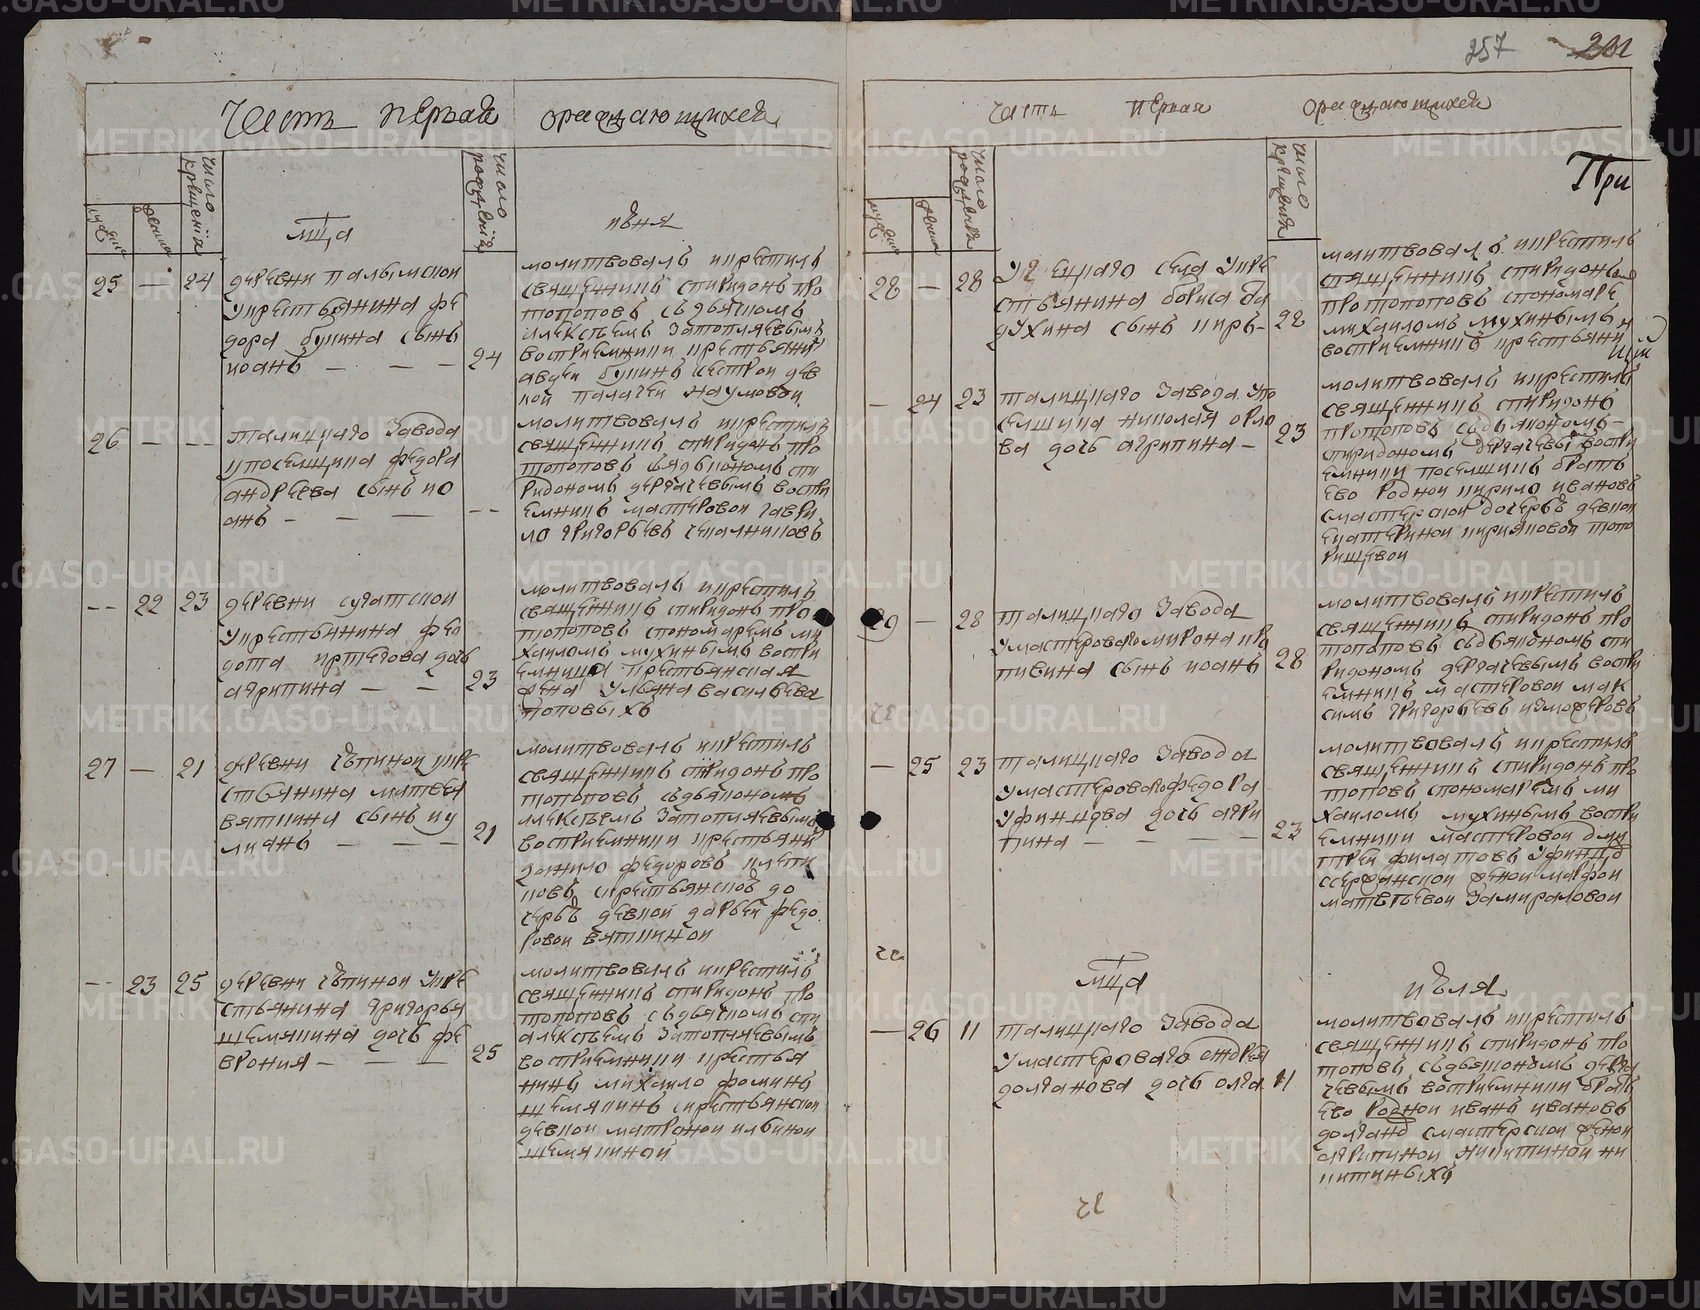 257 201
Часть первая ораждающихся
число крещенїя
число рождениїя
мужеска
женска
мца
июня
25 — 24 деревни палымской
у крестьянина фе
дора бунина сынъ
иоанъ — — — 24
молитвовалъ и крестилъ
священникъ спиридонъ про
топоповъ съдьячкомъ
алексѣемъ Затопляевымъ
восприемники крестьянинъ
авдеи бунинъ сестрои дев
кой палагеи наумовои
26 — -- талицкаго Завода
у поселщика федора
андреева сынъ ио
анъ — — — --
молитвовалъ и крестилъ
священникъ спиридонъ про
топоповъ сьдьякономъ спи
ридономъ дергачевымъ воспри
емникъ мастеровои гаври
ло григорьевъ чекалниковъ
-- 22 23 деревни сугатской
у крестьянина фео
дота иртегова дочь
агрипина — — 23
молитвовалъ и крестилъ
священникъ спиридонъ про
топоповъ спономаремъ ми
хаиломъ мухинымъ воспри
емница крестьянская
жена ульяна васильева
поповыхъ
27 — 21 деревни чѣпинои у кре
стьянина матвея
вяткина сынъ иу
лиянъ — — — 21
молитвовалъ и крестилъ
священникъ спиридонъ про
топоповъ съдьякономъ
алексѣемъ Затопляевымъ
восприемники крестьяни
данило федоровъ плети
новъ скрестьянской до
черью девкой дарьеи федо
ровои вяткинои
-- 23 25 деревни чѣпинои у кре
стьянина григорья
шемякина дочь фе
врония — — — 25
молитвовалъ и крестилъ
священникъ спиридонъ про
топоповъ съдьячкомъ
алексѣемъ Затопляевымъ
восприемники крестья
нинъ михаило фоминъ
шемякинъ скрестьянской
девкой матроной ильиной
шемякиной
часть первая ораждающихся
При
мужеска
женска
число рождения
число крещения
28 — 28
села у кре
стьянина бориса ба
духина сынъ кирь- 28
молитвовалъ и крестилъ
священникъ спиридонъ
протопоповъ спономаре
михаиломъ мухинымъ
восприемникъ крестьяни
— 24 23 талицкаго Завода у по
селщика николая орло
ва дочь агрипина — 23
молитвовалъ и крестилъ
священникъ спиридонъ
протопоповъ съдьякономъ
спиридономъ дергачевы воспри
емники поселщикъ братъ
ево роднои кирило ивановъ
смастерской дочерью девкой
екатериной кирияковой топо
рищевой
29 — 28 талицкаго Завода
у мастероваго мирона кро
пивина сынъ иоанъ 28
молитвовалъ и крестилъ
священникъ спиридонъ про
топоповъ съдьякономъ спи
ридономъ дергачевымъ воспри
емникъ мастеровои мак
симъ григорьевъ измоденовъ
— 25 23 талицкаго Завода
у мастероваго федора
уфинцова дочь агри
пина — — — 23
молитвовалъ и крестилъ
священникъ спиридонъ про
топоповъ спономаремъ ми
хаиломъ мухинымъ воспри
емники мастеровои дми
треи филатовъ уфинцо
ссержанской женой марфой
матвѣевой Замираловой
мца
июля
— 26 11 талицкаго Завода
у мастероваго андрея
долганова дочь олга 11
молитвовалъ и крестилъ
священникъ спиридонъ про
топоповъ съдьякономъ дерга
чевымъ восприемники братъ
ево роднои иванъ ивановъ
долгано смастерской женой
агрипиной никитиной ни
китиныхъ